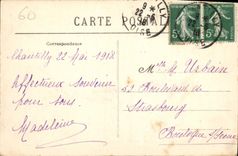 60
CARTE POSTALE
Correspondance
Chantilly 22 Mai 1918
Affectueux souvenir
pour tous.
Madeleine
Mlle M. Urbain
52 Boulevard de
Strasbourg
Boulogne s/Seine
OISE
5
5